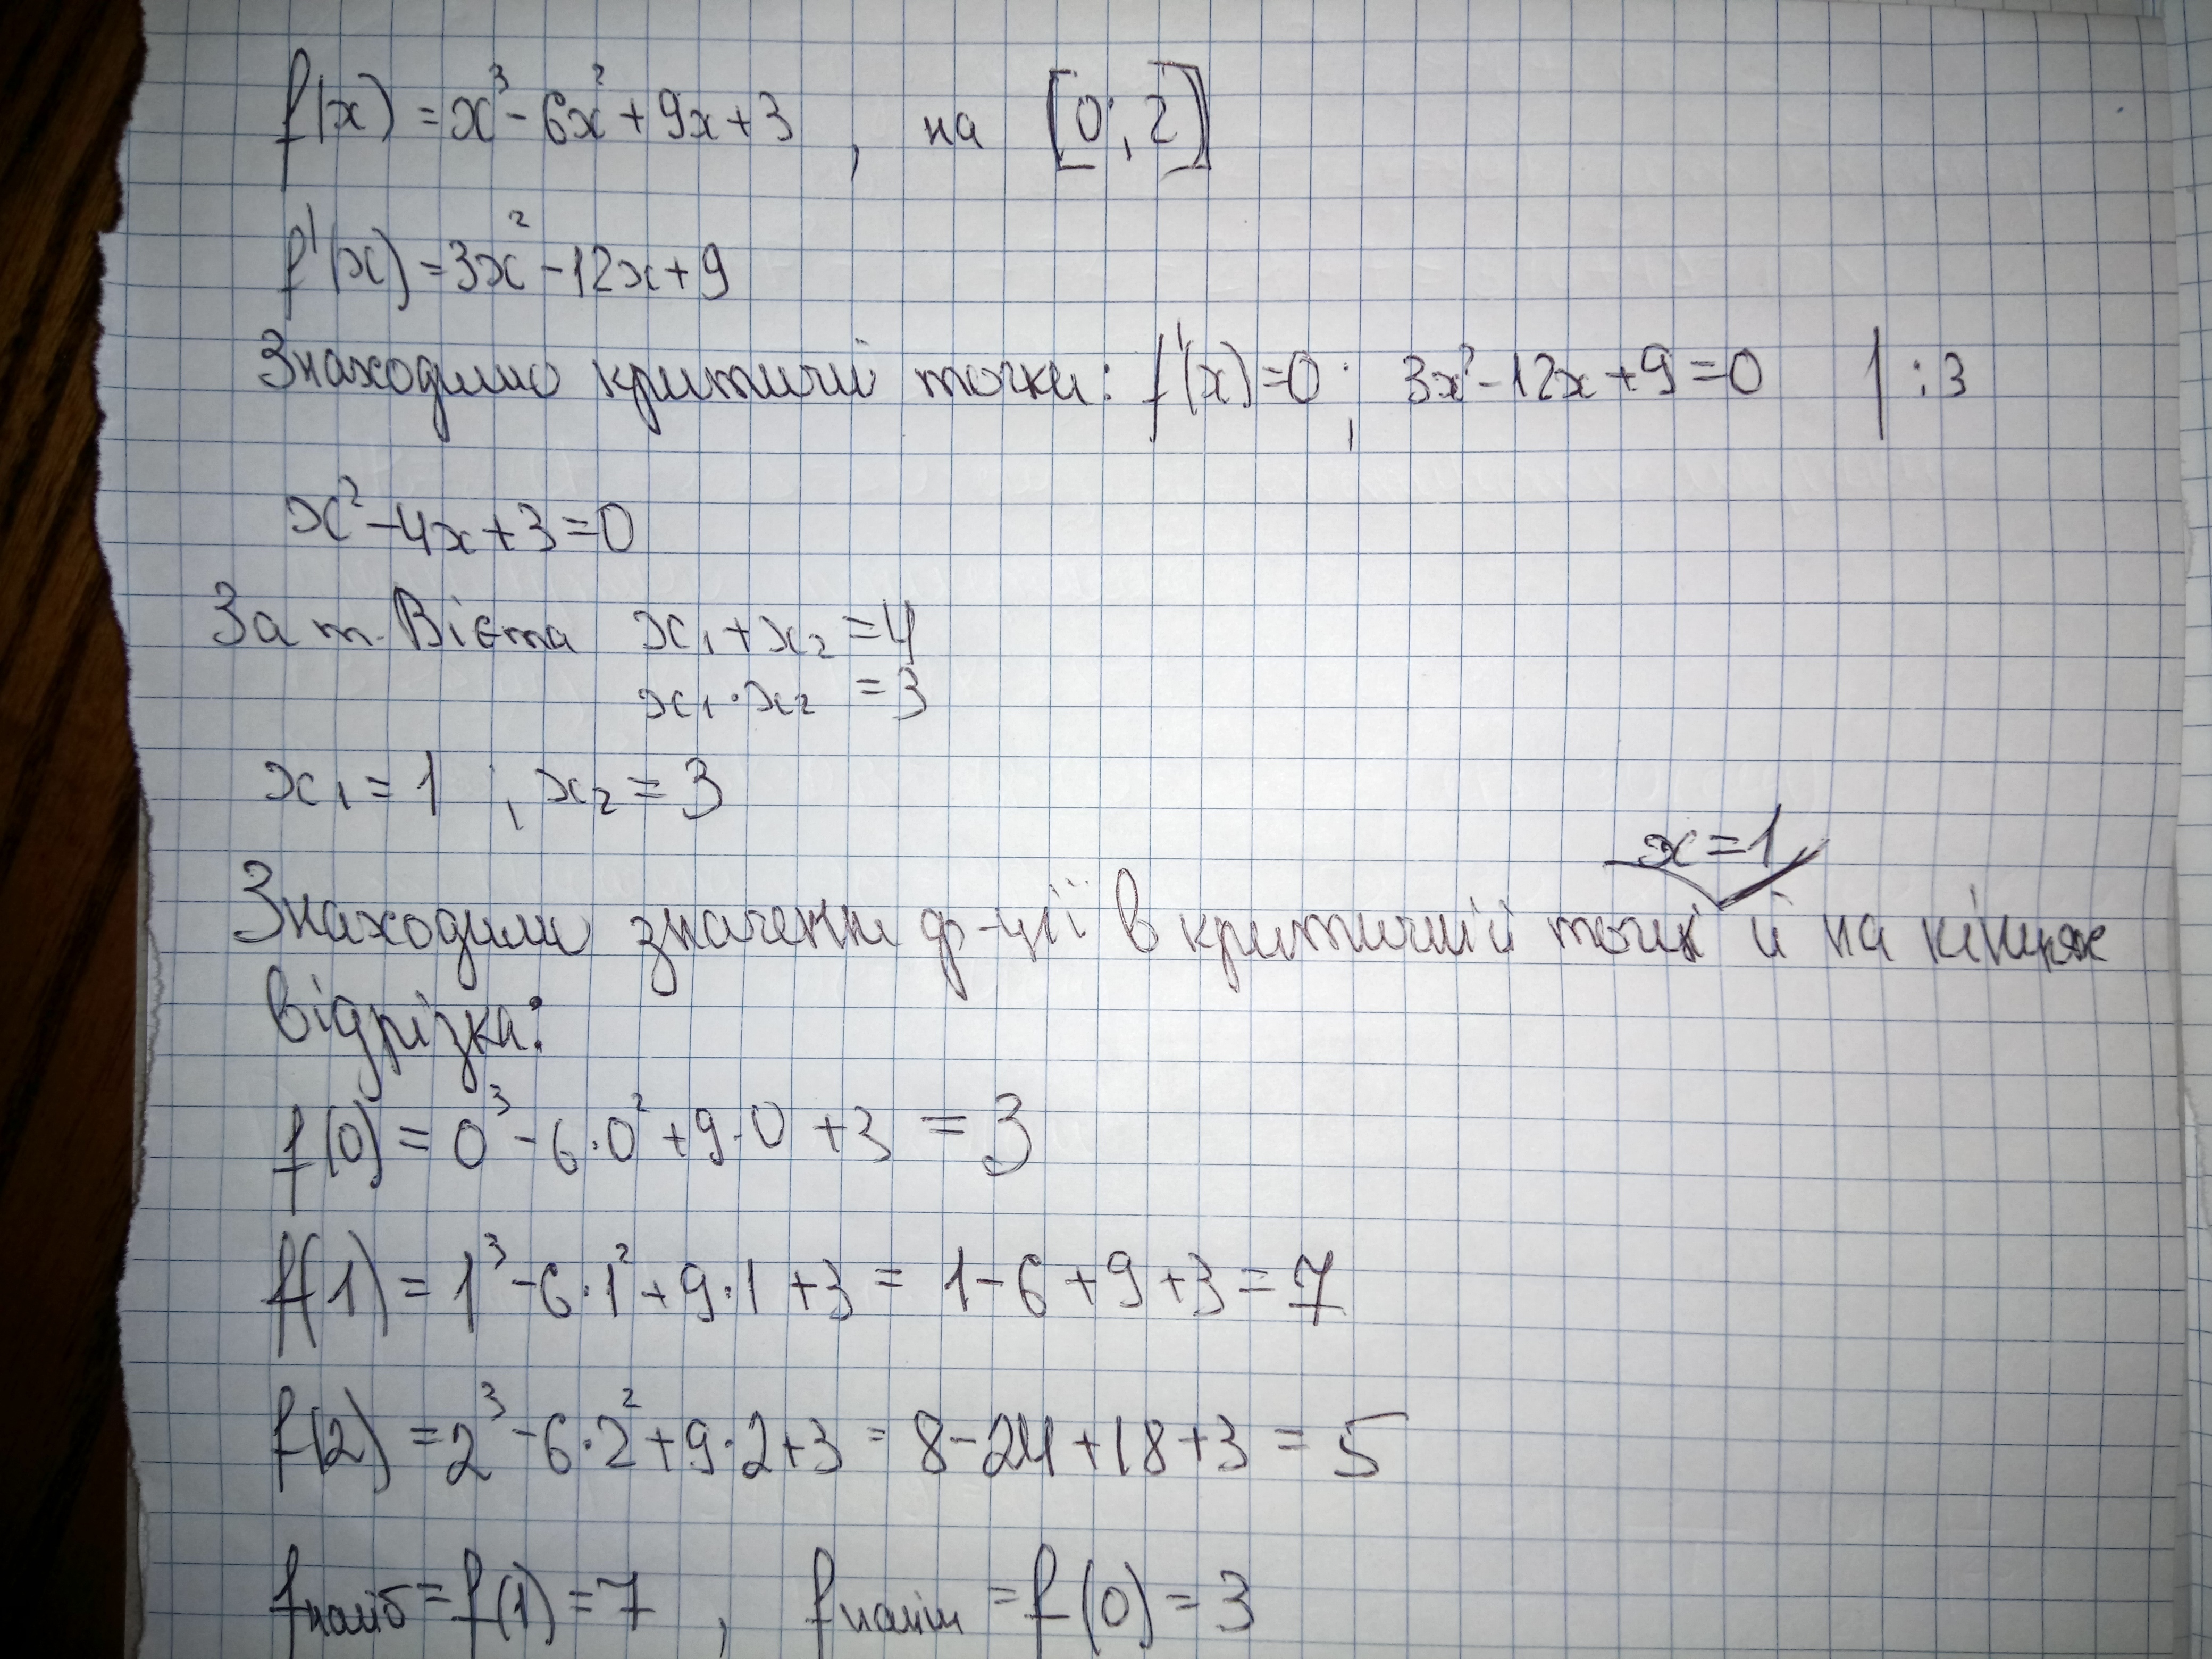 f(x) = x³ - 6x² + 9x + 3 , на [0; 2]
f'(x) = 3x² - 12x + 9
Знаходимо критичні точки: f'(x) = 0 ; 3x² - 12x + 9 = 0 | : 3
x² - 4x + 3 = 0
За т. Вієта x₁ + x₂ = 4
x₁ · x₂ = 3
x₁ = 1 ; x₂ = 3
x = 1
Знаходимо значення ф-ції в критичній точці й на кінцях
відрізка:
f(0) = 0³ - 6 · 0² + 9 · 0 + 3 = 3
f(1) = 1³ - 6 · 1² + 9 · 1 + 3 = 1 - 6 + 9 + 3 = 7
f(2) = 2³ - 6 · 2² + 9 · 2 + 3 = 8 - 24 + 18 + 3 = 5
fнайб = f(1) = 7 , fнайм = f(0) = 3